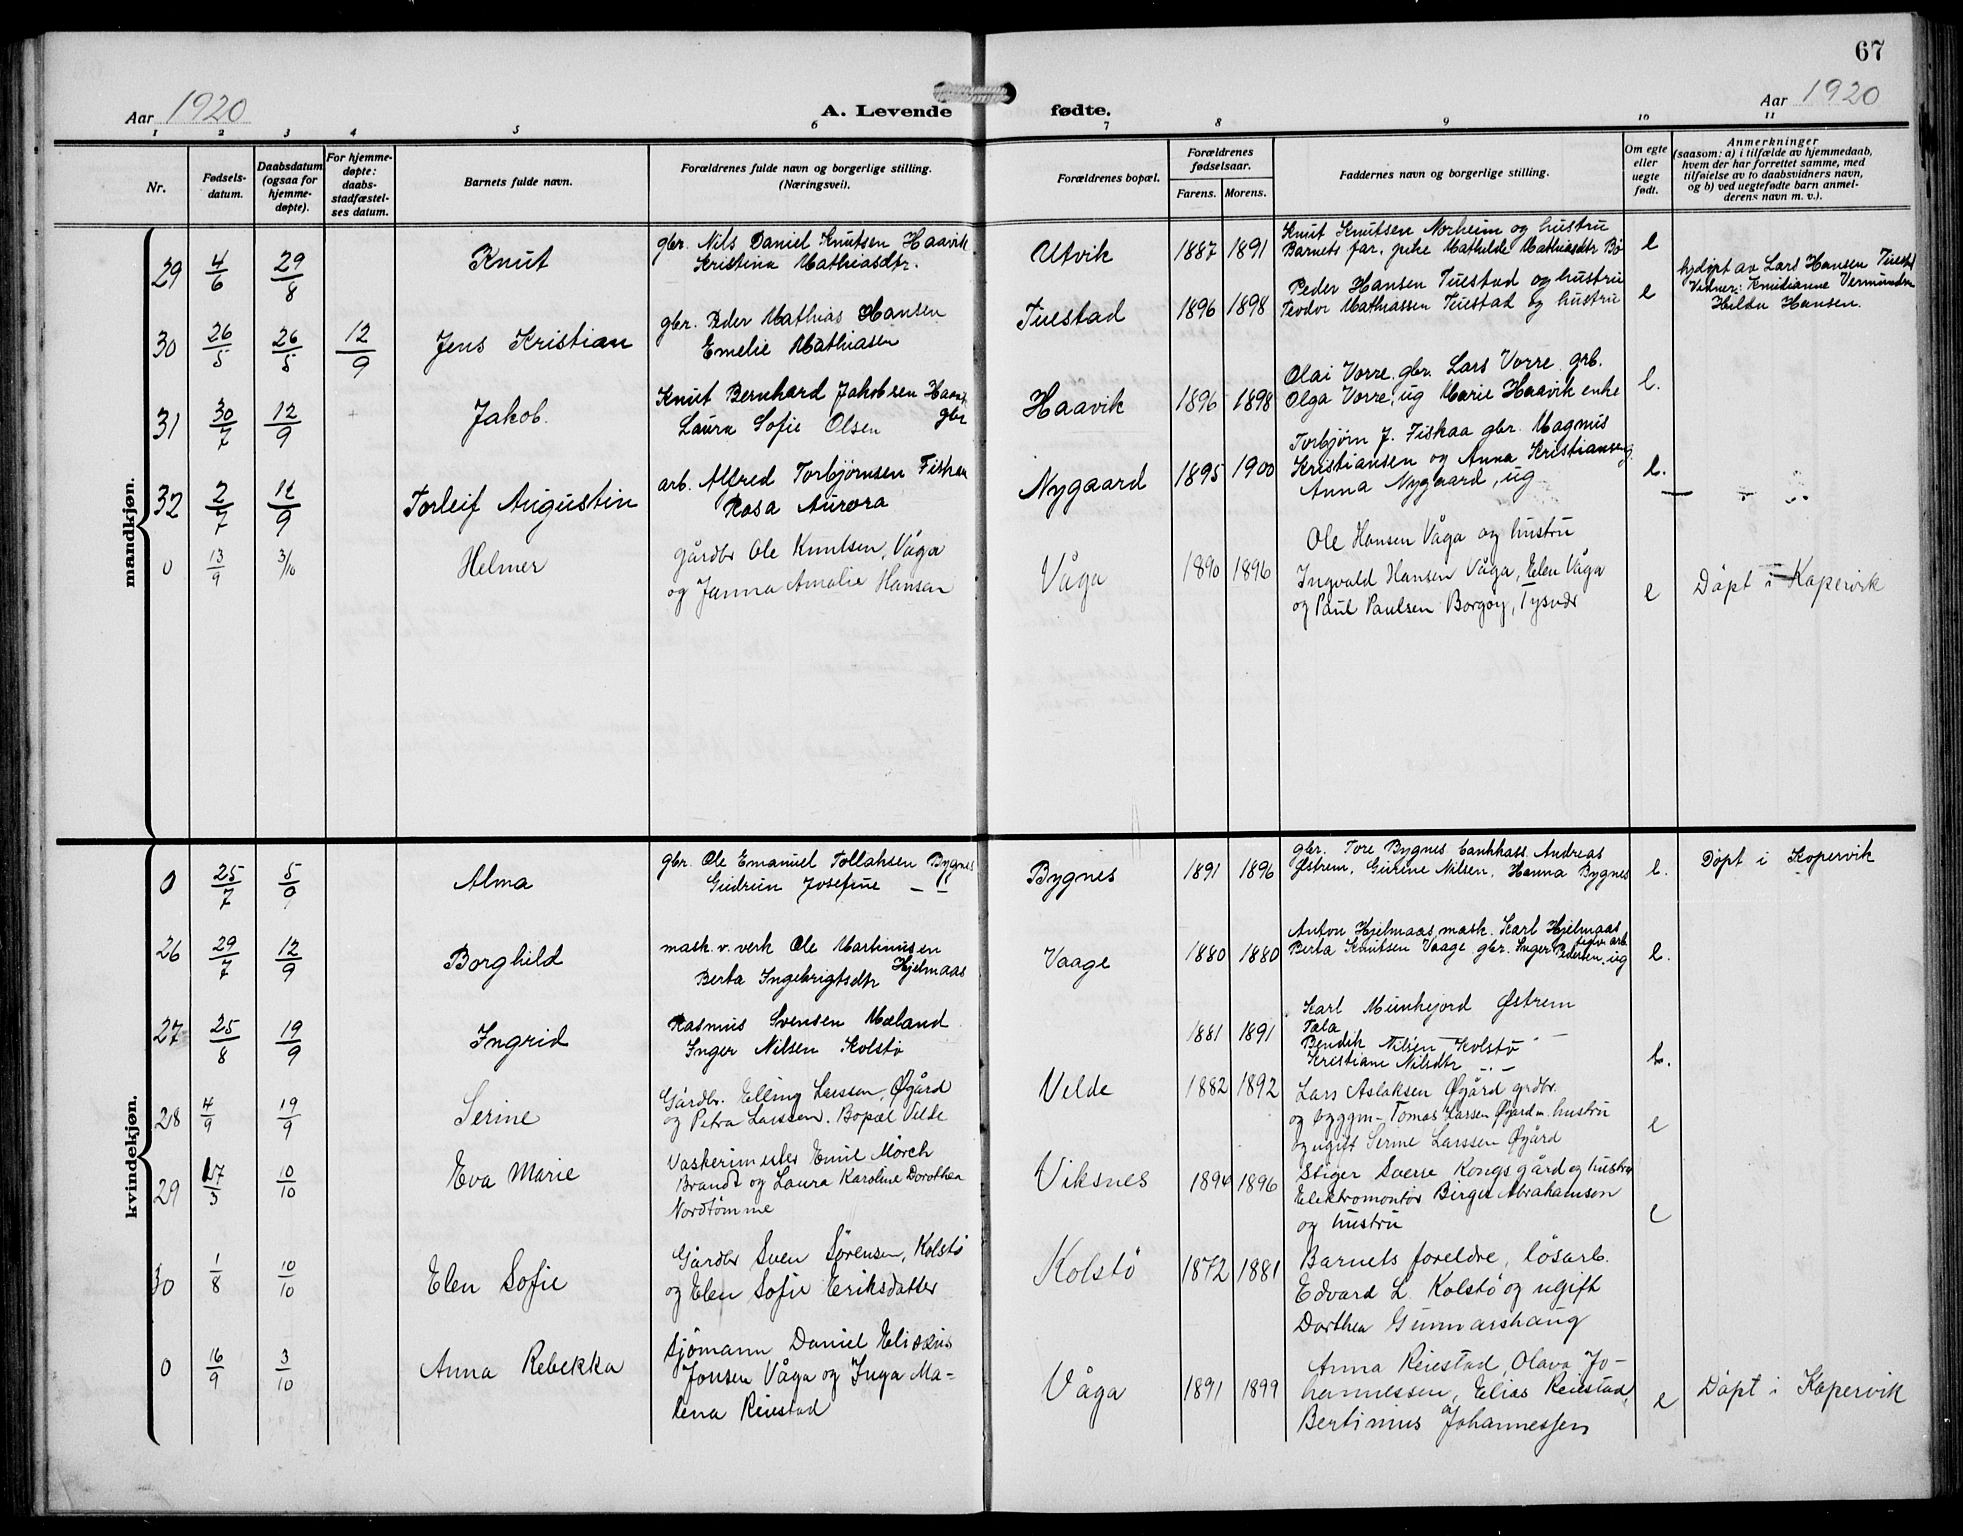 67
Aar 1920
A. Levende fødte.
Aar 1920
1 2 3 4 5 6 7 8 9 10 11
Nr.
Fødsels-
datum.
Daabsdatum
(ogsaa for
hjemme-
døpte).
For hjemme-
døpte:
daabs-
stadfæstel-
ses datum.
Barnets fulde navn.
Forældrenes fulde navn og borgerlige stilling.
(Næringsvei).
Forældrenes bopæl.
Forældrenes
fødselsaar.
Farens. Morens.
Faddernes navn og borgerlige stilling.
Om egte
eller
uegte
født.
Anmerkninger
(saasom: a) i tilfælde av hjemmedaab,
hvem der har forrettet samme, med
tilføielse av to daabsvidners navn,
og b) ved uegtefødte barn anmel-
derens navn m. v.).
mandkjøn.
29 4/6 29/8 Knut
gbr. Nils Daniel Knutsen Haavik
Kristina Mathiasdtr.
Utvik 1887 1891
Knut Knutsen Norheim og hustru
Barnets far, pike Mathilde Mathiasdtr Bø
e
30 26/5 26/5 12/9 Jens Kristian
gbr. Peder Mathias Hansen
Emelie Mathiasen
Tuestad 1896 1898
Peder Hansen Tuestad og hustru
Teodor Mathiassen Tuestad og hustru
e
hjdøpt av Lars Hansen Tuestad
Vidner: Knutianne
Hilda Hansen.
31 30/7 12/9 Jakob.
Knut Bernhard Jakobsen Haavik
Laura Sofie Olsen gbr
Haavik 1896 1898
Olai Vorre gbr. Lars Vorre grb.
Olga Vorre, ug Marie Haavik enke
e.
32 2/7 12/9 Torleif Augustin
arb. Alfred Torbjørnsen Fiskaa
Rosa Aurora
Nygaard 1895 1900
Torbjørn J. Fiskaa gbr. Magnus
Kristiansen og Anna Kristiansen
Anna Nygaard, ug
e.
0 13/9 3/10 Helmer
gårdbr Ole Knutsen, Våga
og Janna Amalie Hansen
Våga 1890 1896
Ole Hansen Våga og hustru
Ingvald Hansen Våga, Elen Våga
og Paul Paulsen Borgøy, Tysvær
e
Døpt i Kopervik
kvindekjøn.
0 25/7 5/9 Alma
gbr. Ole Emanuel Tollaksen Bygnes
Gudrun Josefine — " —
Bygnes 1891 1896
gbr. Tore Bygnes bankkass. Andreas
Østrem, Gurine Nilsen, Hanna Bygnes
e.
Døpt i Kopervik
26 29/7 12/9 Borghild
mask. v. verk Ole Martinusen
Berta Ingebrigtsdtr Hjelmaas
Vaage 1880 1880
Anton Hjelmaas mask. Karl Hjelmaas
Berta Knutsen Vaage gbr. Inger Pedersen, ug
e.
27 25/8 19/9 Ingrid
Rasmus Svensen Mæland
Inger Nilsen Kolstø
1881 1891
Karl Munkejord Østrem
Tala — " —
Bendik Nilsen Kolstø
Kristiane Nilsdtr — " —
e.
28 4/9 19/9 Serine
Gårdbr. Elling Larssen, Øgård
og Petra Larssen. Bopæl Velde
Velde 1882 1892
Lars Aslaksen Øgård grdbr.
og byggm. Tomas Larsen Øgård m. hustru
og ugift Serine Larssen Øgård
e
29 17/3 10/10 Eva Marie
Vaskerimester Emil Mörch
Brandt og Laura Karoline Dorothea
Nordtømme
Viksnes 1894 1896
Stiger Sverre Kongsgård og hustru
Elektromontør Birger Abrahamsen
og hustru
e
30 1/8 10/10 Elen Sofie
Gårdbr Sven Sørensen, Kolstø
og Elen Sofie Eriksdatter
Kolstø 1872 1881
Barnets foreldre, løsarb.
Edvard L. Kolstø og ugift
Dorthea Gunnarshaug
0 16/9 3/10 Anna Rebekka
Sjømann Daniel Elissius
Jonsen Våga og Inga Ma-
lena Reiestad
Våga 1891 1899
Anna Reiestad, Olava Jo-
hannessen, Elias Reiestad,
Bertinius og Johannessen
e
Døpt i Kopervik